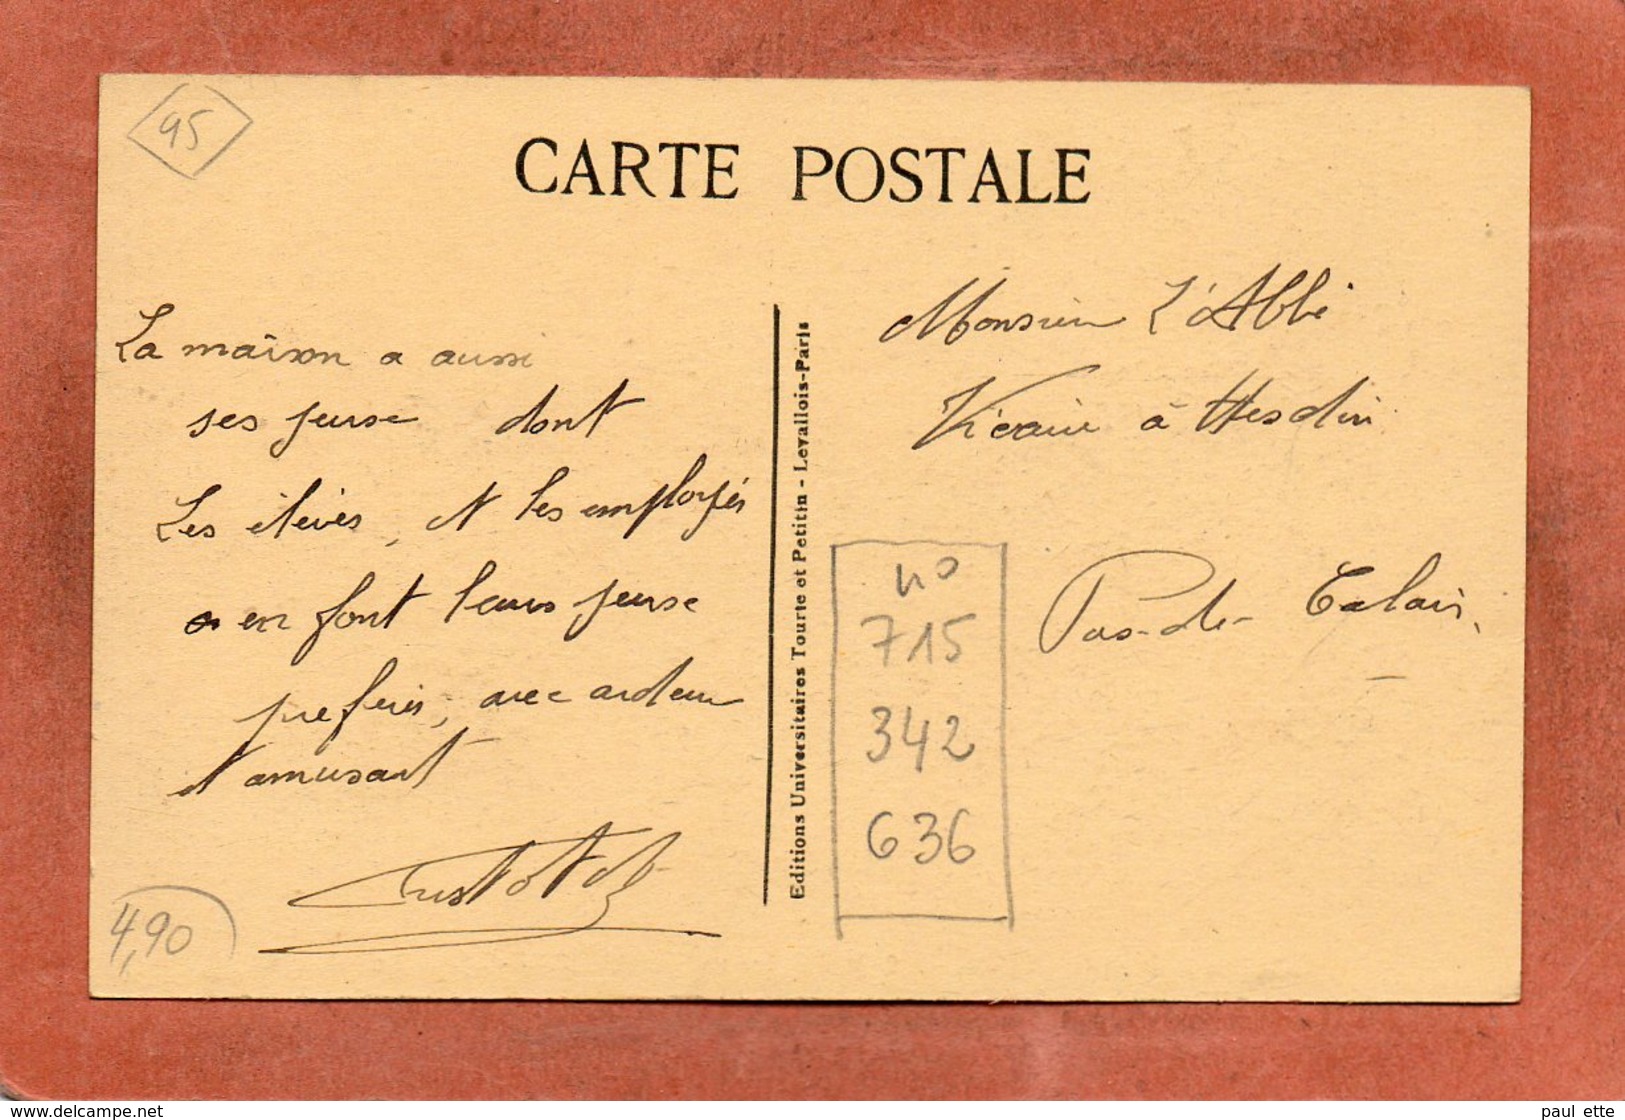 95
CARTE POSTALE
La maison a aussi
ses jeuse dont
Les élèves, et les employés
en font leurs jeuse
preferés, avec ardeur
et amusant
4,90
Editions Universitaires Tourte et Petitin - Levallois-Paris
Monsieur L'Abbé
Vicaire à Hesdin
Pas-de-Calais
no
715
342
636
delcampe.net
paul ette